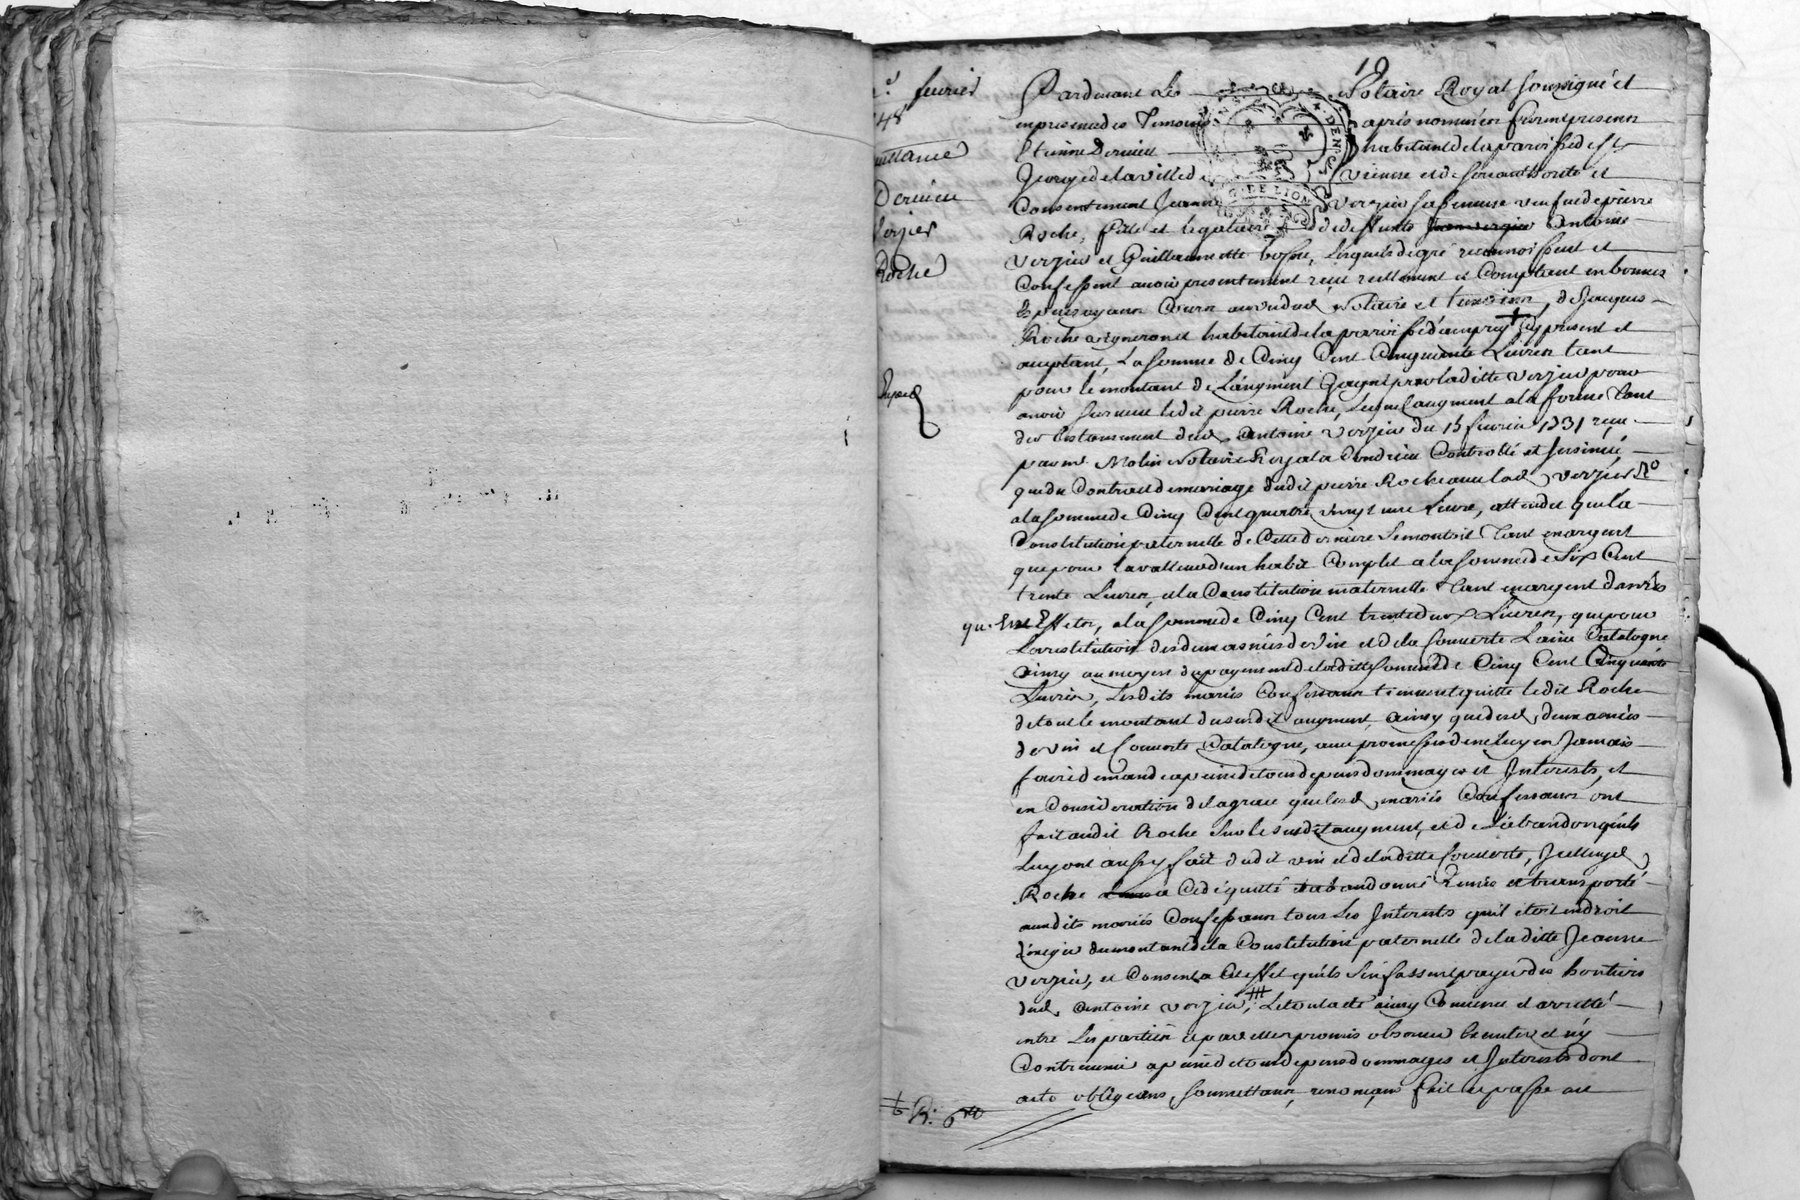 19
fevrier
48
Derieu
Verzier
Roche
Pardevant Les Notaire Royal soussigné et
en presence des Temoins après nommés furent presens
Etienne Derieu habitant de la paroisse de St
George de la ville de Vienne et de son authorité et
Consentement Jeanne Verzier sa femme veuve de pierre
Roche, fille et legataire de deffunts Antoine
Verzier et Guillaumette bosse, Lesquels de gré reconnoissent et
Confessent avoir presentement reçu reellement et Comptant en bonnes
Especes ayans Cours au vu dud. Notaire et temoins, de Jacques
Roche vigneron habitant de la paroisse d'ampuy Cy present et
acceptant, La somme de Cinq Cent Cinquante Livres tant
pour le montant de L'augment gagné par laditte Verzier pour
avoir survecu ledit pierre Roche, Lequel augment a la forme tant
du testament dud. Antoine Verzier du 15 fevrier 1731 reçu
par me Molin Notaire Royal a Condrieu Controllé et Insinué,
que du Contract de mariage dudit pierre Roche avec lad. Verzier
a la somme de Cinq Cent quatre vingt une Livre, attendu que la
Constitution paternelle de Cette derniere se montoit tant en argent
que pour la valleur d'un habit Complet a la somme de Six Cent
trente Livres, et la Constitution maternelle tant en argent denrées
qu'en Effets, a la somme de Cinq Cent trente deux Livres, que pour
La restitution des deux asnées de vin et de la Couverte Laine Catalogne
Ainsy au moyen du payement de laditte somme de Cinq Cent Cinquante
Livres, Lesdits mariés Confessans tiennent quitte ledit Roche
de tout le montant du susdit augment, ainsy que desd. deux asnées
de vin et Couverte Catalogne, avec promesse de ne luy en Jamais
faire demande a peine de tous depens dommages et Interests, et
en Consideration de la grace que lesd. mariés Confessans ont
fait audit Roche sur le susdit augment, et de L'abandon qu'ils
Luy ont aussy fait dudit vin et de laditte Couverte, Icelluy d.
Roche a Cedé quitté abandonné Remis et transporté
auxdits mariés Confessans tous Les Interests qu'il etoit en droit
d'exiger du montant de la Constitution paternelle de laditte Jeanne
Verzier, et Consent a Cet effet qu'ils s'en fassent payer des heritiers
dud. Antoine Verzier, Le tout a eté ainsy Convenu et arretté
entre Les parties et par elles promis observer Executer et n'y
Contrevenir a peine de tous depens dommages et Interests dont
acte obligeans, soumettans, renonçans fait et passé au